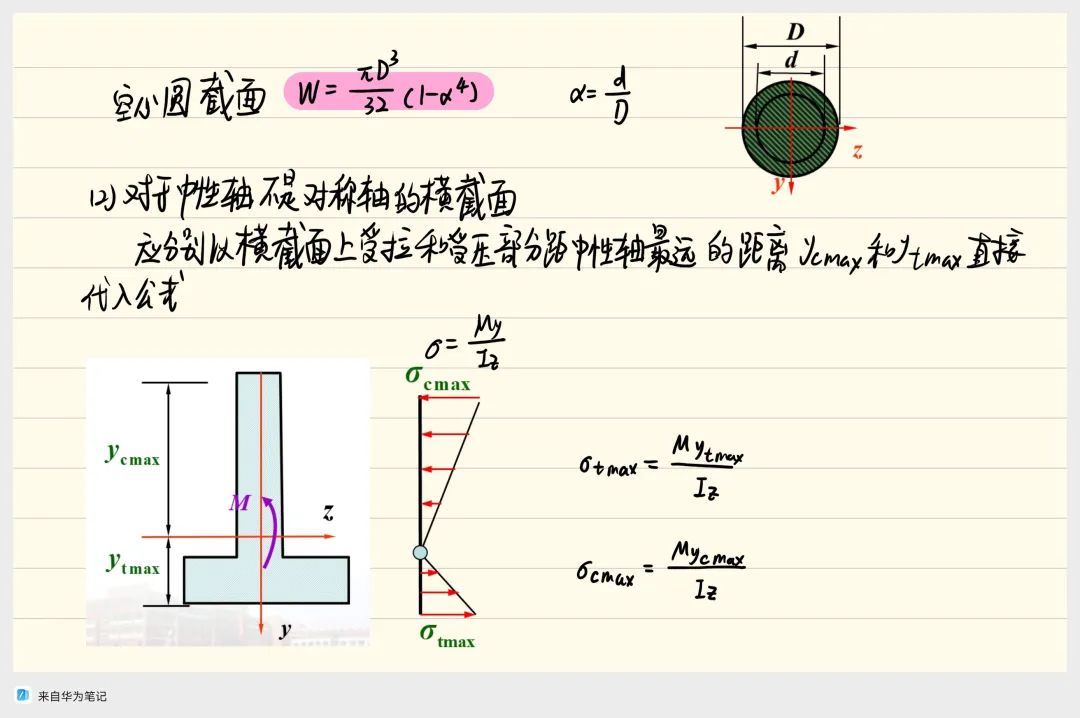 空心圆截面 W = πD³/32 (1-α⁴) α = d/D
D
d
z
y
(2) 对于中性轴不是对称轴的横截面
应分别以横截面上受拉和受压部分距中性轴最远的距离 ycmax 和 ytmax 直接
代入公式
σ = My/Iz
σcmax
ycmax
M
z
ytmax
y
σtmax
σtmax = Mytmax/Iz
σcmax = Mycmax/Iz
来自华为笔记